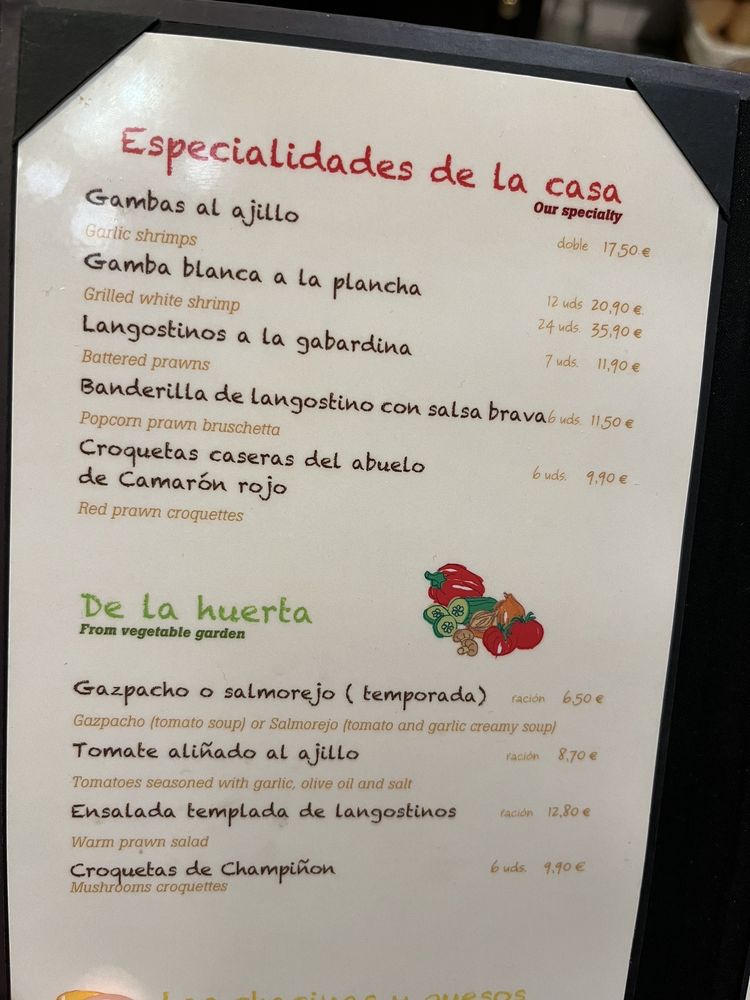 Especialidades de la casa
Our specialty
Gambas al ajillo
Garlic shrimps
doble 17,50 €
Gamba blanca a la plancha
Grilled white shrimp
12 uds 20,90 €
24 uds. 35,90 €
Langostinos a la gabardina
Battered prawns
7 uds. 11,90 €
Banderilla de langostino con salsa brava 6 uds. 11,50 €
Popcorn prawn bruschetta
Croquetas caseras del abuelo
de Camarón rojo
6 uds. 9,90 €
Red prawn croquettes
De la huerta
From vegetable garden
Gazpacho o salmorejo ( temporada) ración 6,50 €
Gazpacho (tomato soup) or Salmorejo (tomato and garlic creamy soup)
Tomate aliñado al ajillo ración 8,70 €
Tomatoes seasoned with garlic, olive oil and salt
Ensalada templada de langostinos ración 12,80 €
Warm prawn salad
Croquetas de Champiñon 6 uds. 9,90 €
Mushrooms croquettes
y quesos